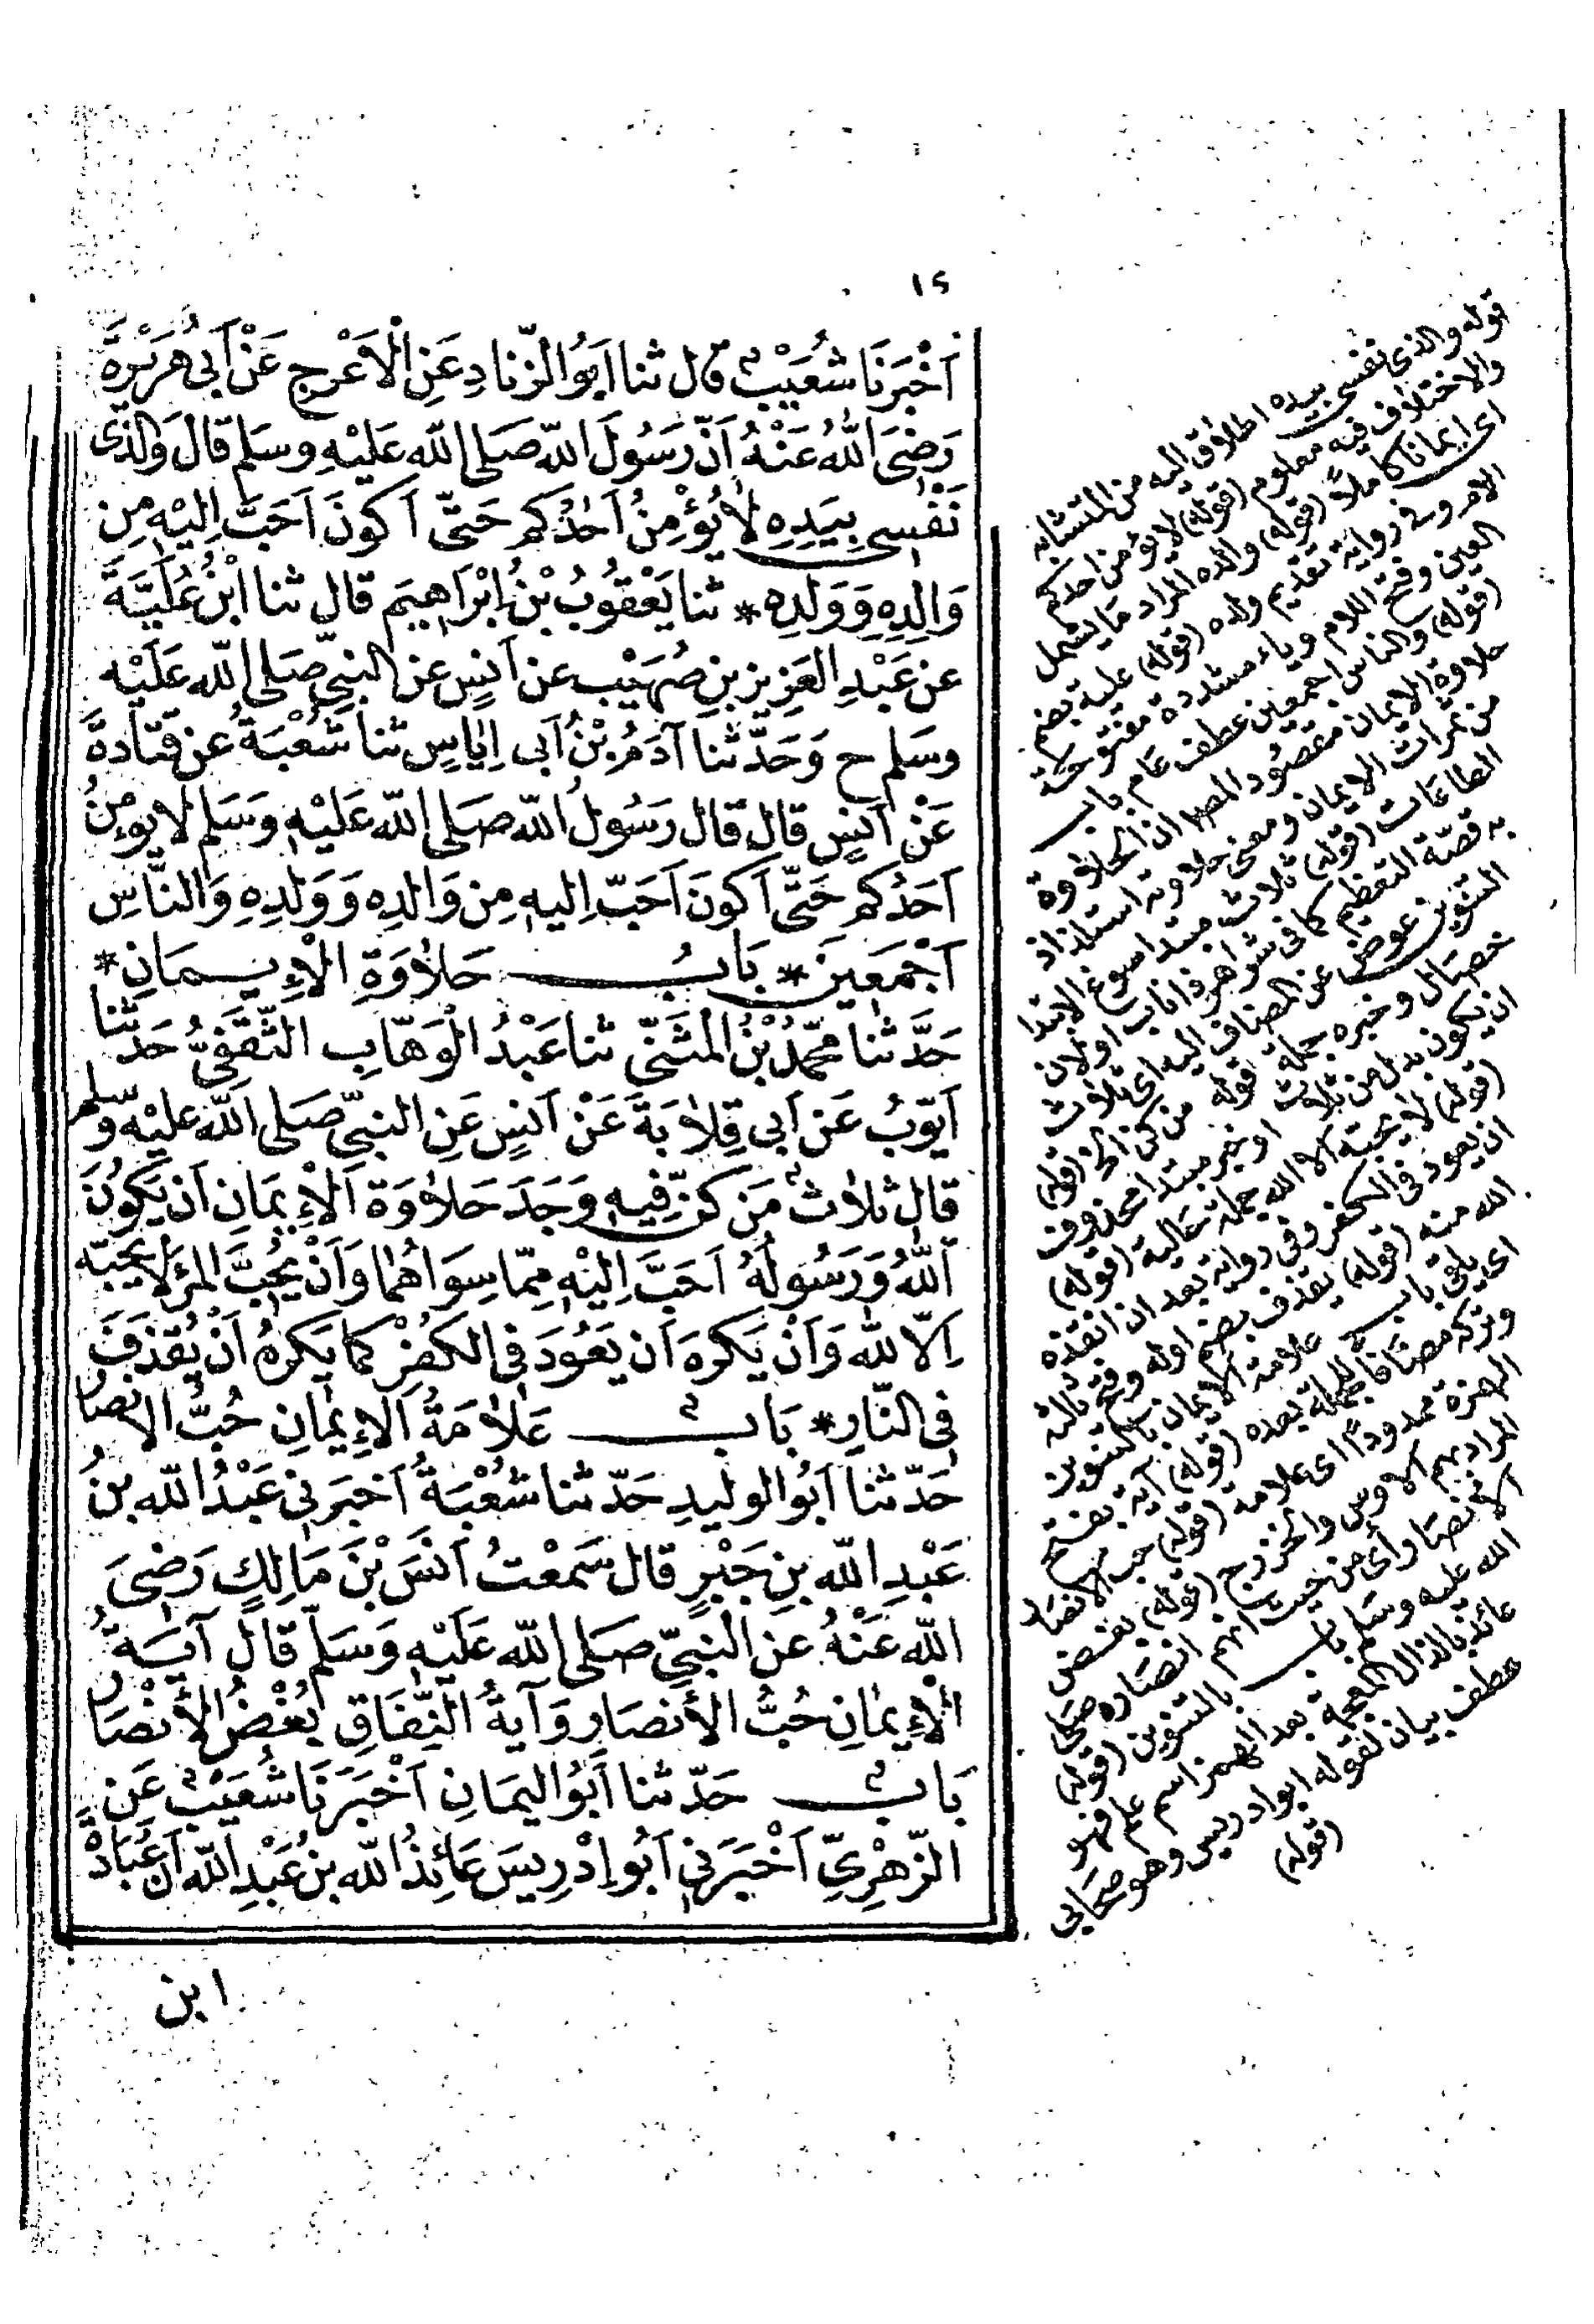 ١٢
اَخْبَرَنَا شُعَيْبٌ قال ثنا اَبُو الزّنادِ عَنِ الْاَعْرَجِ عَنْ اَبِى هُرَيْرَةَ
رَضِىَ اللّٰهُ عَنْهُ اَنّ رَسُولَ اللّه صَلى اللّه عَليْهِ وسَلم قالَ وَالذّى
نَفسِى بِيَدِهِ لاٰ يُؤْمِنُ اَحٰدُكم حَتّى اَكونَ اَحَبَّ اِليْهِ مِن
وَالِدِهِ وَوَلدِهِ * ثنا يَعْقُوبُ بْنُ اِبْرَاهِيمَ قال ثنا ابْنُ عُلَيَّةَ
عن عَبْدِ العَزِيزِ بنِ صُهَيْبٍ عن اَنسٍ عن النبِىّ صَلى اللّه عَلَيْهِ
وسَلم ح وَحَدَّثنا آدَمُ بْنُ اَبى اِيَاسٍ ثنا شُعْبَةُ عن قتَادةَ
عَنْ اَنسٍ قال قال رَسُولُ اللّه صَلى اللّه عَليْهِ وسَلم لا يؤمِنُ
اَحَدُكم حَتّى اَكونَ اَحَبّ اِليهِ مِن وَالدِهِ وَوَلدِهِ وَالنَّاسِ
اَجْمَعِينَ * بَابُ حَلاٰوَةِ الْاِيمَانِ *
حَدَّثنا محَمّدُ بْنُ المثَنّى ثنا عَبْدُ الْوَهّابِ الثّقَفىُّ حَدّثنا
اَيّوبُ عَن اَبى قِلاٰبَةَ عَنْ اَنسٍ عَنِ النبىّ صَلى اللّه عليْه وسلم
قال ثلاٰثٌ مَن كنّ فِيهِ وَجَدَ حَلاٰوَة اَلْاِيمَانِ اَن يَكونَ
اَللّٰهُ وَرَسُولهُ اَحَبَّ اِليْهِ مِمّا سِوَاهُما وَاَنْ يُحِبَّ المرْءَ لا يحبّه
اِلاّ للّه وَاَنْ يَكرَهَ اَن يَعُودَ فِى الكُفْرِ كما يَكرهُ اَنْ يُقذَفَ
فِى النّارِ * بَابٌ عَلاٰمَةُ اَلاِيمٰانِ حُبُّ الانصار
حَدّثنا اَبُو الوليدِ حَدّثنا شُعْبَةُ اَخبَرَنِى عَبْدُ اللّه بنُ
عَبْدِ اللّه بنِ جَبْرٍ قال سَمعْتُ اَنَسَ بْنَ مَالِكٍ رَضِىَ
اللّه عَنْهُ عن النبىّ صَلى اللّه عَلَيْهِ وَسَلمّ قالَ آيَةُ
الاِيمٰانِ حُبُّ الأنصَارِ وَآيةُ النّفَاقِ بُغْضُ الأنْصَار
بَابٌ حَدّثنا اَبُو اليمَانِ اَخْبَرَنَا شُعَيْبٌ عَنِ
الزّهْرِىّ اَخْبَرَنِى اَبُو اِدْرِيسَ عَائِذُ اللّه بنُ عَبْدِ اللّه اَنّ عُبَادَةَ
ابن
قوله والذى نفسى بيده اطلاق اليد من المتشابه
والاختلاف فيه معلوم (قوله) لا يؤمن احدكم
اى ايمانا كاملاً (قوله) والده المراد ما يشمل
الام وفى رواية تقديم ولده (قوله) علية بضم
العين وفتح اللام وياء مشددة مفتوحة
(قوله) والناس اجمعين عطف عام باب
حلاوة الايمان مقصود المصـ ان الحلاوة
من ثمرات الايمان ومعنى حلاوته استلذاذ
الطاعات (قوله) ثلاث مبتدا سوغ الابتدا
به قصد التعظيم كما فى شر اهر ذا ناب او لان
التنوين عوض عن المضاف اليه اى ثلاث
خصال وخبره جملة قوله من كن الخ (قوله)
ان يكون بدل من ثلاث او خبر مبتدا محذوف
(قوله) لا يحبه الا للّه جملة حالية (قوله)
ان يعود فى الكفر وفى رواية بعد ان انقذه
اللّه منه (قوله) يقذف بضم اوله وفتح ثالثه
اى يلقى باب علامة الايمان بالتنوين
وتركه مضافا للجملة بعده (قوله) آية بفتح
الهمزة ممدوداً اى علامة (قوله) حب الانصار
المراد بهم الاوس والخزرج (قوله) بغض
الانصار اى من حيث انهم انصاره صلى
اللّه عليه وسلم باب بالتنوين (قوله)
عائذ بالذال المعجمة بعد الهمز اسم علم فهو
عطف بيان لقوله ابو ادريس وهو صحابى
(قوله)